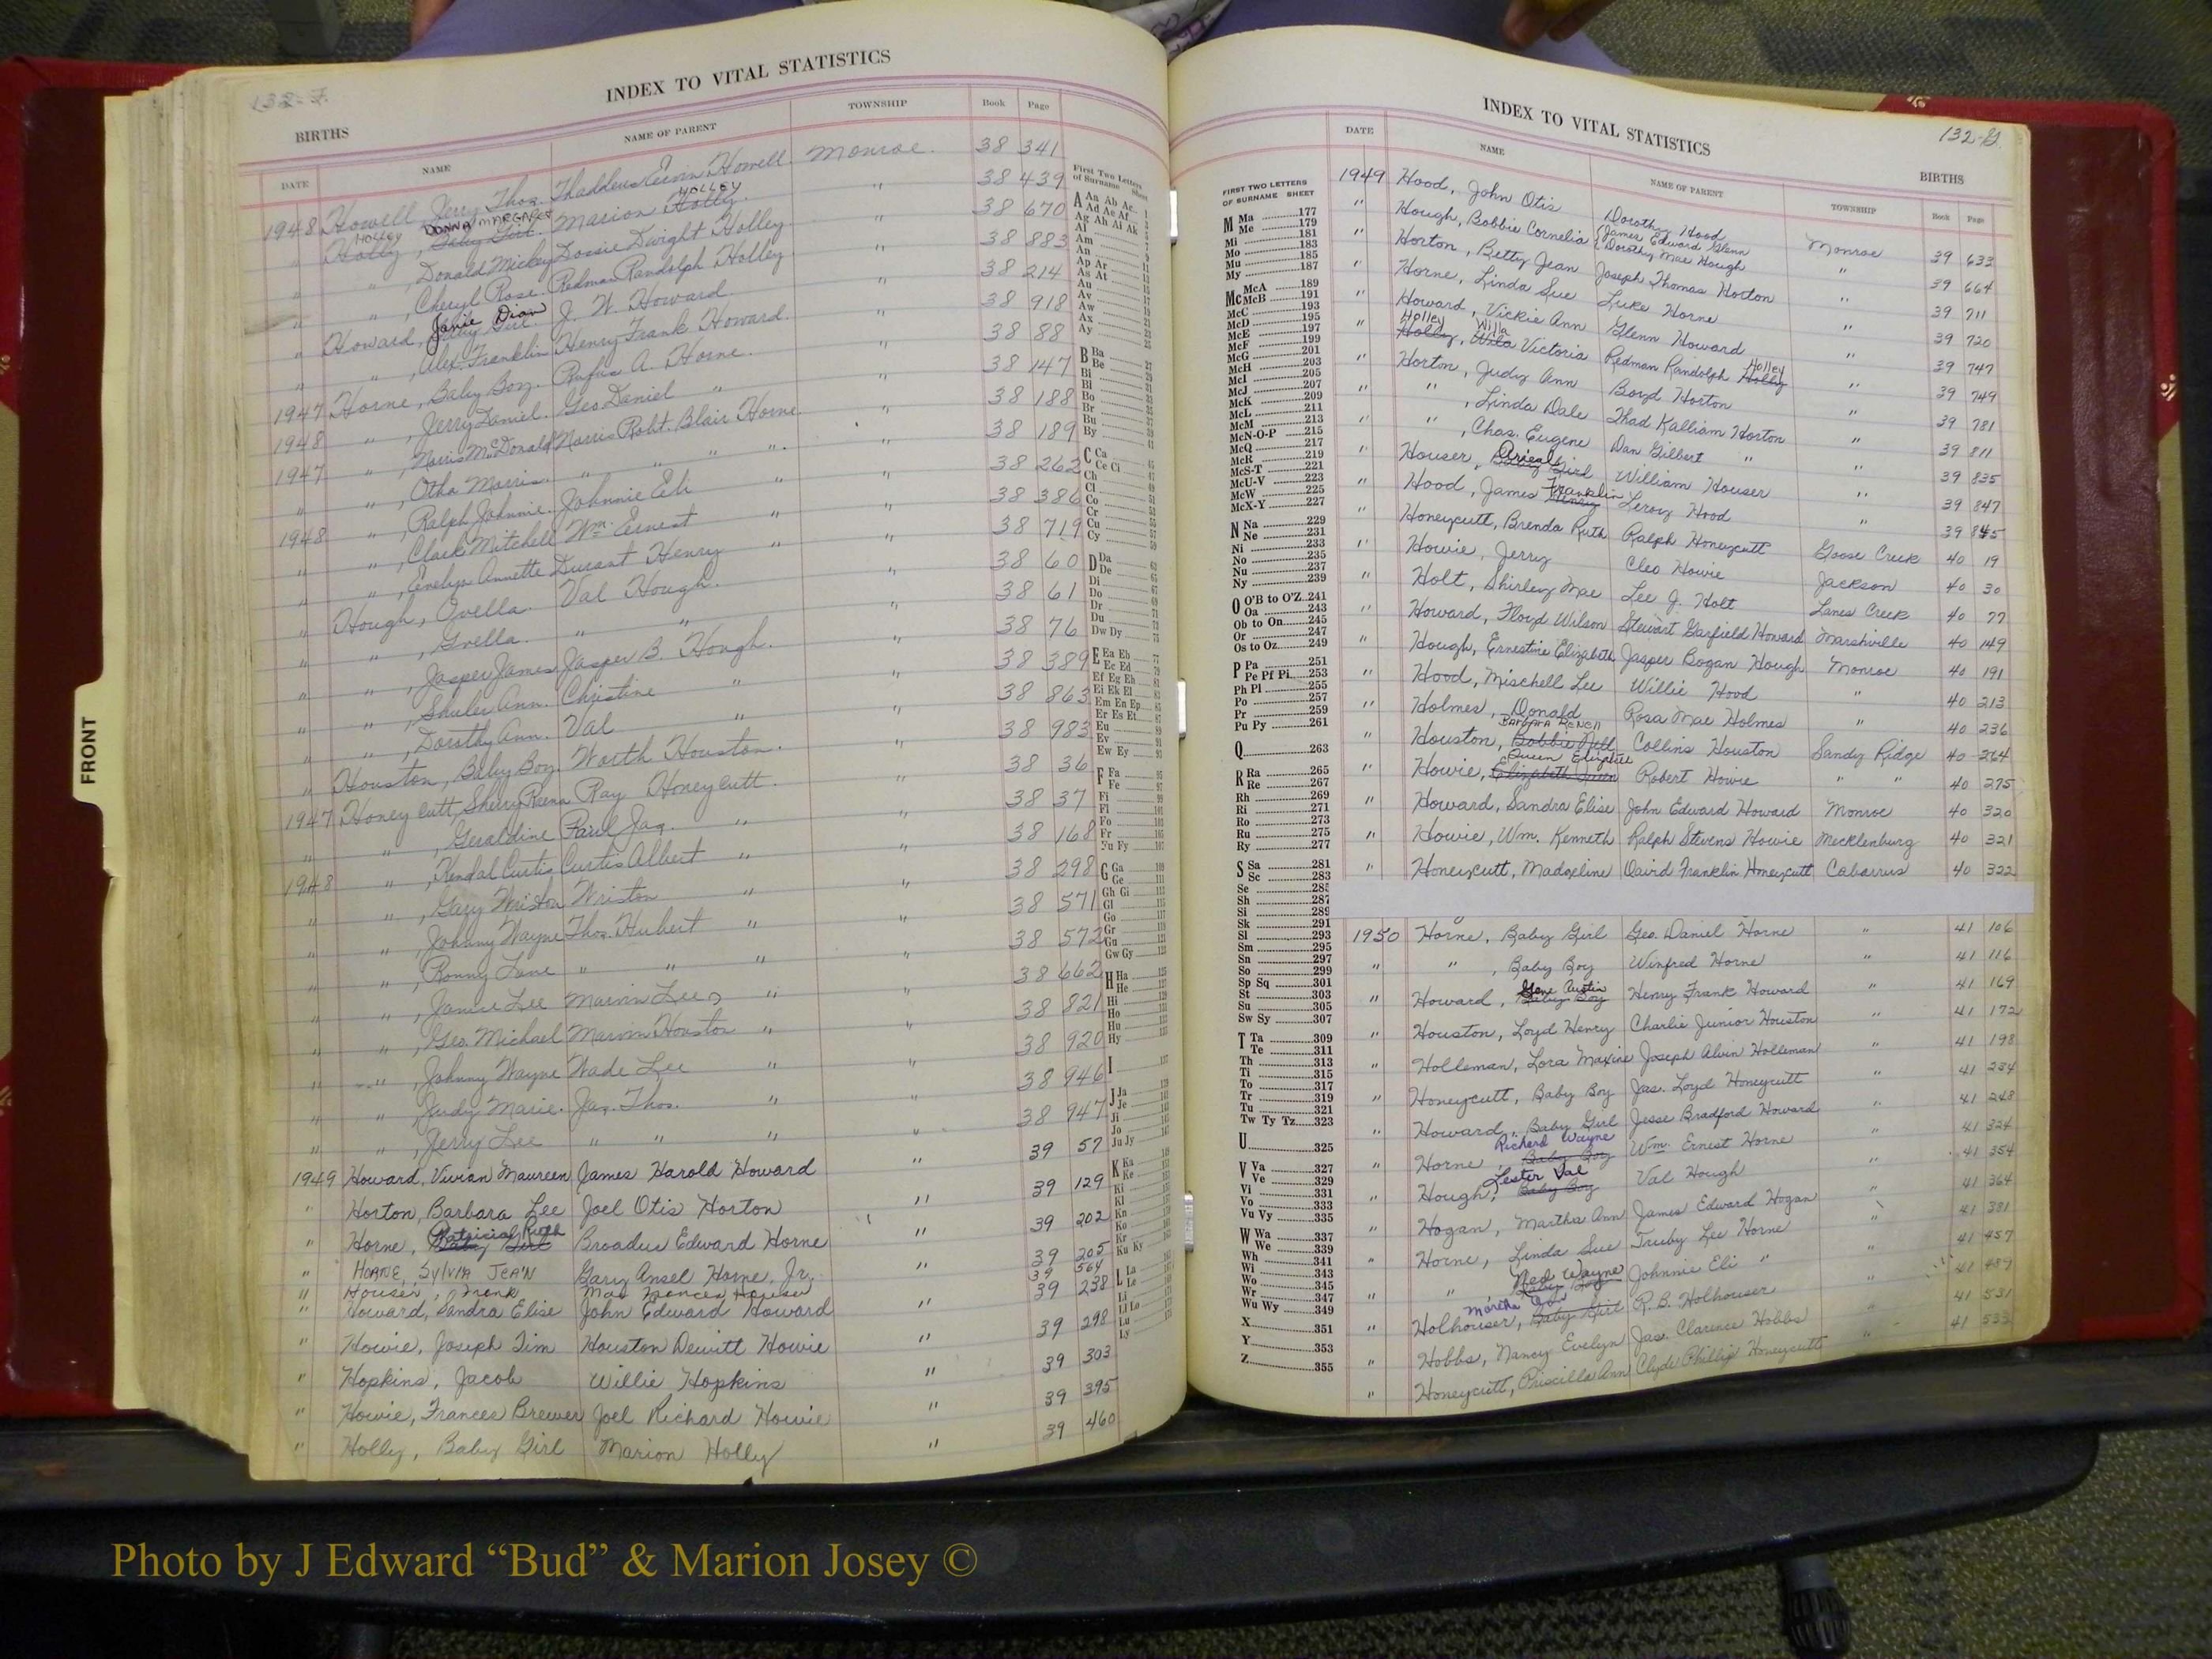 132-F.
INDEX TO VITAL STATISTICS
BIRTHS
DATE NAME NAME OF PARENT TOWNSHIP Book Page
1948 Howell, Jerry Thos. Thaddeus Ervin Howell Monroe. 38 341
HOLLEY DONNA MARGARET HOLLEY
" Holly, Baby Girl. Marion Holly. " 38 439
" " , Donald Mickey Dossie Dwight Holley " 38 670
" " , Cheryl Rose. Redman Randolph Holley " 38 883
Janie Dian
" Howard, Baby Girl. J. W. Howard " 38 214
" " , Alex. Franklin Henry Frank Howard. " 38 918
1947 Horne, Baby Boy. Rufus A. Horne. " 38 88
1948 " , Jerry Daniel. Geo Daniel " " 38 147
1947 " , Norris McDonald Norris Robt. Blair Horne. " 38 188
" " , Otha Morris. " " " " 38 189
1948 " , Ralph Johnnie. Johnnie Eli " " 38 262
" " , Clark Mitchell Wm. Ernest " " 38 386
" " , Evelyn Annette Durant Henry " " 38 719
" Hough, Ovella. Val Hough. " 38 60
" " , Grella. " " " 38 61
" " , Jasper James Jasper B. Hough. " 38 76
" " , Shuler Ann. Christine " " 38 389
" " , Dorothy Ann. Val " " 38 863
" Houston, Baby Boy Worth Houston. " 38 983
1947 Honeycutt, Sherry Raena Ray Honeycutt. " 38 36
" " , Geraldine Paul Jay. " " 38 37
1948 " , Kendal Curtis Curtis Albert " " 38 168
" " , Gary Wriston Wriston " " 38 298
" " , Johnny Wayne Thos. Hubert " " 38 571
" " , Ronny Lane " " " " 38 572
" " , Janice Lee Marvin Lee " " 38 662
" " , Geo. Michael Marvin Houston " " 38 821
" " , Johnny Wayne Wade Lee " " 38 920
" " , Judy Marie. Jas. Thos. " " 38 946
" " , Jerry Lee " " " " 38 947
1949 Howard, Vivian Maureen James Harold Howard " 39 57
" Horton, Barbara Lee Joel Otis Horton " 39 129
Patricial Ruth
" Horne, Baby Girl Broadus Edward Horne " 39 202
" HORNE, SYLVIA JEAN Gary Ansel Horne, Jr. 39 205
" Houser, Frank Mae Frances Houser 39 564
" Howard, Sandra Elise John Edward Howard " 39 238
" Howie, Joseph Tim Houston Dewitt Howie " 39 298
" Hopkins, Jacob Willie Hopkins " 39 303
" Howie, Frances Brewer Joel Richard Howie " 39 395
" Holly, Baby Girl Marion Holly " 39 460
FRONT
First Two Letters
of Surname Sheet
A Aa Ab Ac
Ad Ae Af
Ag Ah Ai Ak
Al
Am
An
Ap Ar
As At
Au
Av
Aw
Ax
Ay
B Ba
Be
Bi
Bl
Bo
Br
Bu
By
C Ca
Ce Ci
Ch
Cl
Co
Cr
Cu
Cy
D Da
De
Di
Do
Dr
Du
Dw Dy
E Ea Eb
Ec Ed
Ef Eg Eh
Ei Ek El
Em En Ep
Er Es Et
Eu
Ev
Ew Ey
F Fa
Fe
Fi
Fl
Fo
Fr
Fu Fy
G Ga
Ge
Gh Gi
Gl
Go
Gr
Gu
Gw Gy
H Ha
He
Hi
Ho
Hu
Hy
I
J Ja
Je
Ji
Jo
Ju Jy
K Ka
Ke
Ki
Kl
Kn
Ko
Kr
Ku Ky
L La
Le
Li
Ll Lo
Lu
Ly
INDEX TO VITAL STATISTICS
132-G.
BIRTHS
DATE NAME NAME OF PARENT TOWNSHIP Book Page
FIRST TWO LETTERS
OF SURNAME SHEET
M Ma 177
Me 179
Mi 181
Mo 183
Mu 185
My 187
Mc McA 189
McB 191
McC 193
McD 195
McE 197
McF 199
McG 201
McH 203
McI 205
McJ 207
McK 209
McL 211
McM 213
McN-O-P 215
McQ 217
McR 219
McS-T 221
McU-V 223
McW 225
McX-Y 227
N Na 229
Ne 231
Ni 233
No 235
Nu 237
Ny 239
O O'B to O'Z 241
Oa 243
Ob to On 245
Or 247
Os to Oz 249
P Pa 251
Pe Pf Pi 253
Ph Pl 255
Po 257
Pr 259
Pu Py 261
Q 263
R Ra 265
Re 267
Rh 269
Ri 271
Ro 273
Ru 275
Ry 277
S Sa 281
Sc 283
Se 285
Sh 287
Si 289
Sk 291
Sl 293
Sm 295
Sn 297
So 299
Sp Sq 301
St 303
Su 305
Sw Sy 307
T Ta 309
Te 311
Th 313
Ti 315
To 317
Tr 319
Tu 321
Tw Ty Tz 323
U 325
V Va 327
Ve 329
Vi 331
Vo 333
Vu Vy 335
W Wa 337
We 339
Wh 341
Wi 343
Wo 345
Wr 347
Wu Wy 349
X 351
Y 353
Z 355
1949 Hood, John Otis Dorothy Hood Monroe 39 633
" Hough, Bobbie Cornelia { James Edward Glenn
{ Dorothy Mae Hough " 39 664
" Horton, Betty Jean Joseph Thomas Horton " 39 711
" Horne, Linda Sue Luke Horne " 39 720
" Howard, Vickie Ann Glenn Howard " 39 747
Holley Willa Holley
" Holly, Wila Victoria Redman Randolph Holly " 39 749
" Horton, Judy Ann Boyd Horton " 39 781
" " , Linda Dale Thad Kalliam Horton " 39 811
" " , Chas. Eugene Dan Gilbert " " 39 835
" Houser, Baby Girl William Houser " 39 847
Franklin
" Hood, James Henry Leroy Hood " 39 845
" Honeycutt, Brenda Ruth Ralph Honeycutt Goose Creek 40 19
" Howie, Jerry Cleo Howie Jackson 40 30
" Holt, Shirley Mae Lee J. Holt Lanes Creek 40 77
" Howard, Floyd Wilson Stewart Garfield Howard Marshville 40 149
" Hough, Ernestine Elizabeth Jasper Bogan Hough Monroe 40 191
" Hood, Mischell Lee Willie Hood " 40 213
" Holmes, Donald Rosa Mae Holmes " 40 236
BARBARA
" Houston, Bobbie Nell Collins Houston Sandy Ridge 40 264
Queen Elizabeth
" Howie, Elizabeth Queen Robert Howie " " 40 275
" Howard, Sandra Elise John Edward Howard Monroe 40 320
" Howie, Wm. Kenneth Ralph Stevens Howie Mecklenburg 40 321
" Honeycutt, Madgeline David Franklin Honeycutt Cabarrus 40 322
1950 Horne, Baby Girl Geo. Daniel Horne " 41 106
" " , Baby Boy Winfred Horne " 41 116
Gene Austin
" Howard, Baby Boy Henry Frank Howard " 41 169
" Houston, Loyd Henry Charlie Junior Houston " 41 172
" Holleman, Lora Maxine Joseph Alvin Holleman " 41 198
" Honeycutt, Baby Boy Jas. Loyd Honeycutt " 41 234
" Howard, Baby Girl Jesse Bradford Howard " 41 248
Richard Wayne
" Horne, Baby Boy Wm. Ernest Horne " 41 324
Lester Val
" Hough, Baby Boy Val Hough " 41 354
" Hogan, Martha Ann James Edward Hogan " 41 364
" Horne, Linda Sue Truby Lee Horne " 41 381
Ned Wayne
" " , Baby Boy Johnnie Eli " " 41 457
Martha Ann
" Holhouser, Baby Girl R.B. Holhouser " 41 489
" Hobbs, Nancy Evelyn Jas. Clarence Hobbs " 41 531
" Honeycutt, Priscilla Ann Clyde Phillip Honeycutt " 41 533
Photo by J Edward “Bud” & Marion Josey ©